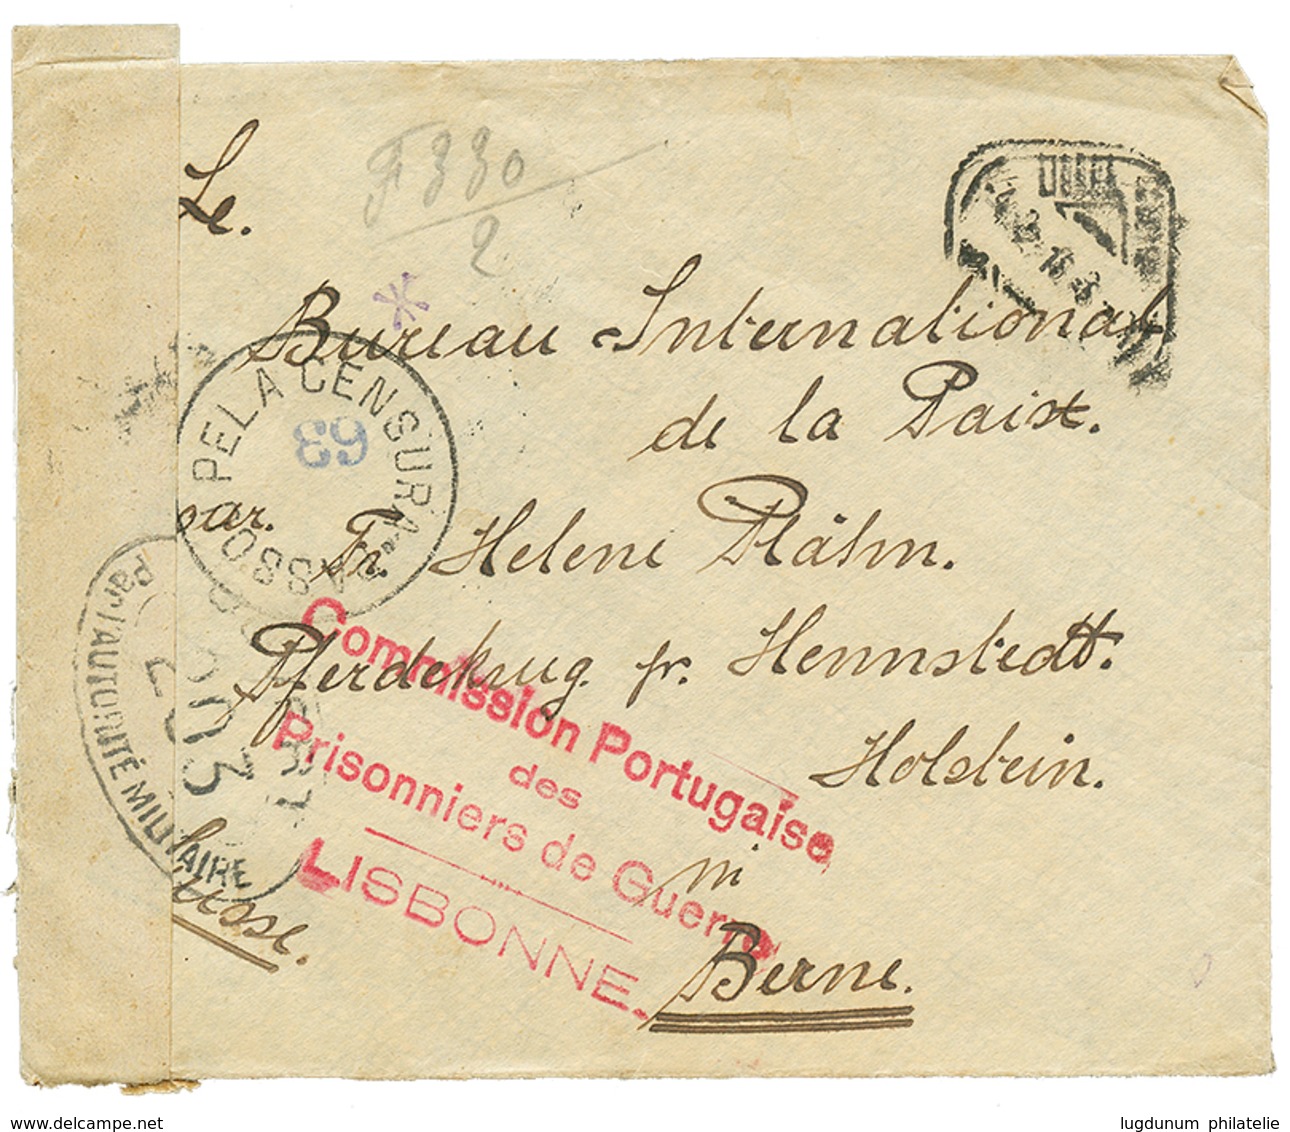 Le.
F 330
2
Bureau International
de la Paix.
PASSADO PELA CENSURA
63
par. Fr. Helene Plähn.
Pferdekrug pr. Hennstedt.
Holstein.
Par l'AUTORITÉ MILITAIRE
Commission Portugaise
des
Prisonniers de Guerre
LISBONNE
in
Berne.
delcampe.net
lugdunum philatelie